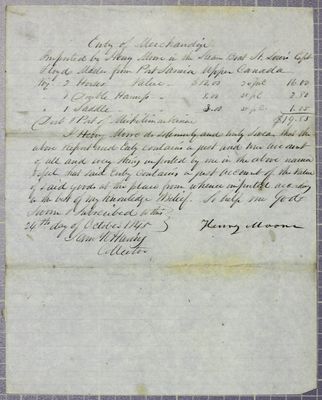 Entry of Merchandize
Imported by Henry Moore in the Steam Boat St. Louis Capt
Floyd Master from Port Sarnia Upper Canada
Viz 2 Horses Value $ 20 pct 16.00
" 1 Double Harness " 30 pct
" 1 Saddle " 30 pct
Port $19.55
I Henry Moore do solemnly and truly swear that the
above report and Entry contains a just and true account
of all and every thing imported by me in the above named
that said Entry contains a just account of the value
of said goods at the place from whence imported according
to the best of my knowledge & Belief. So help me God
Sworn & subscribed to this
29th day of October 1845 Henry Moore
Collector